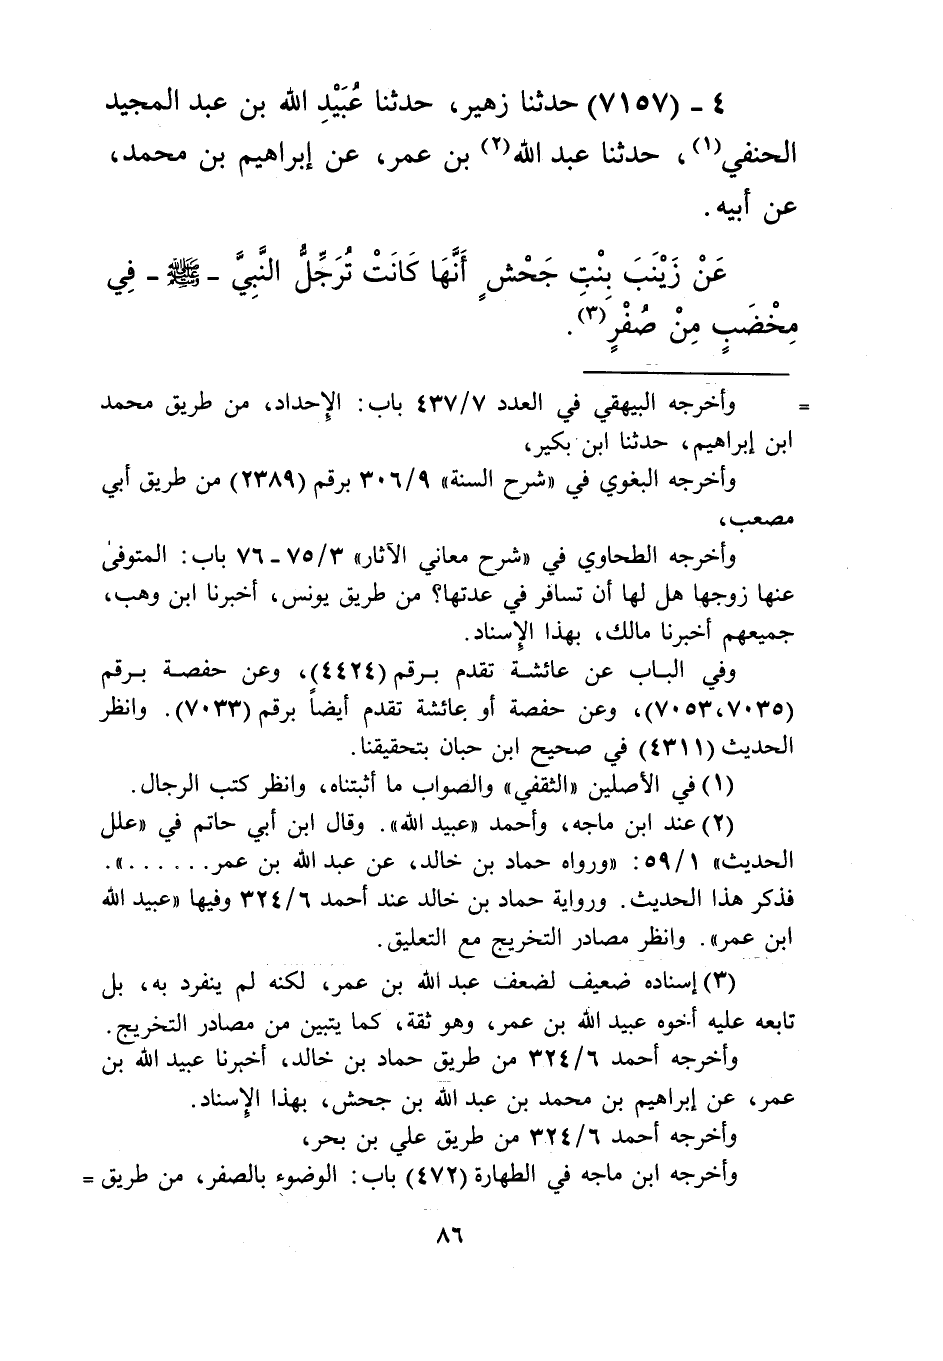 ٤ - (٧١٥٧) حدثنا زهير، حدثنا عُبَيْدِ الله بن عبد المجيد
الحنفي(١)، حدثنا عبد الله(٢) بن عمر، عن إبراهيم بن محمد،
عن أبيه.
عَنْ زَيْنَبَ بِنْتِ جَحْشٍ أَنَّهَا كَانَتْ تُرَجِّلُ النَّبِيَّ - ﷺ - فِي
مِخْضَبٍ مِنْ صُفْرٍ(٣).
= وأخرجه البيهقي في العدد ٤٣٧/٧ باب: الإحداد، من طريق محمد
ابن إبراهيم، حدثنا ابن بكير،
وأخرجه البغوي في «شرح السنة» ٣٠٦/٩ برقم (٢٣٨٩) من طريق أبي
مصعب،
وأخرجه الطحاوي في «شرح معاني الآثار» ٧٥/٣ - ٧٦ باب: المتوفىٰ
عنها زوجها هل لها أن تسافر في عدتها؟ من طريق يونس، أخبرنا ابن وهب،
جميعهم أخبرنا مالك، بهذا الإسناد.
وفي الباب عن عائشة تقدم برقم (٤٤٢٤)، وعن حفصة برقم
(٧٠٣٥، ٧٠٥٣)، وعن حفصة أو عائشة تقدم أيضاً برقم (٧٠٣٣). وانظر
الحديث (٤٣١١) في صحيح ابن حبان بتحقيقنا.
(١) في الأصلين «الثقفي» والصواب ما أثبتناه، وانظر كتب الرجال.
(٢) عند ابن ماجه، وأحمد «عبيد الله». وقال ابن أبي حاتم في «علل
الحديث» ٥٩/١: «ورواه حماد بن خالد، عن عبد الله بن عمر......».
فذكر هذا الحديث. ورواية حماد بن خالد عند أحمد ٣٢٤/٦ وفيها «عبيد الله
ابن عمر». وانظر مصادر التخريج مع التعليق.
(٣) إسناده ضعيف لضعف عبد الله بن عمر، لكنه لم ينفرد به، بل
تابعه عليه أخوه عبيد الله بن عمر، وهو ثقة، كما يتبين من مصادر التخريج.
وأخرجه أحمد ٣٢٤/٦ من طريق حماد بن خالد، أخبرنا عبيد الله بن
عمر، عن إبراهيم بن محمد بن عبد الله بن جحش، بهذا الإسناد.
وأخرجه أحمد ٣٢٤/٦ من طريق علي بن بحر،
وأخرجه ابن ماجه في الطهارة (٤٧٢) باب: الوضوء بالصفر، من طريق =
٨٦